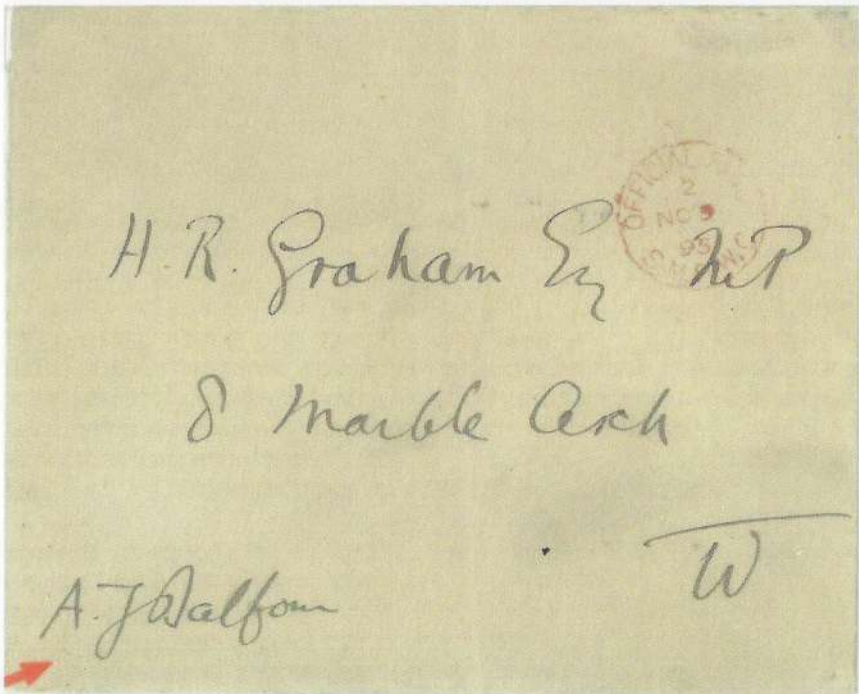 OFFICIAL
2
NO
95
H. R. Graham Esq MP
8 Marble Arch
W
A. J. Balfour